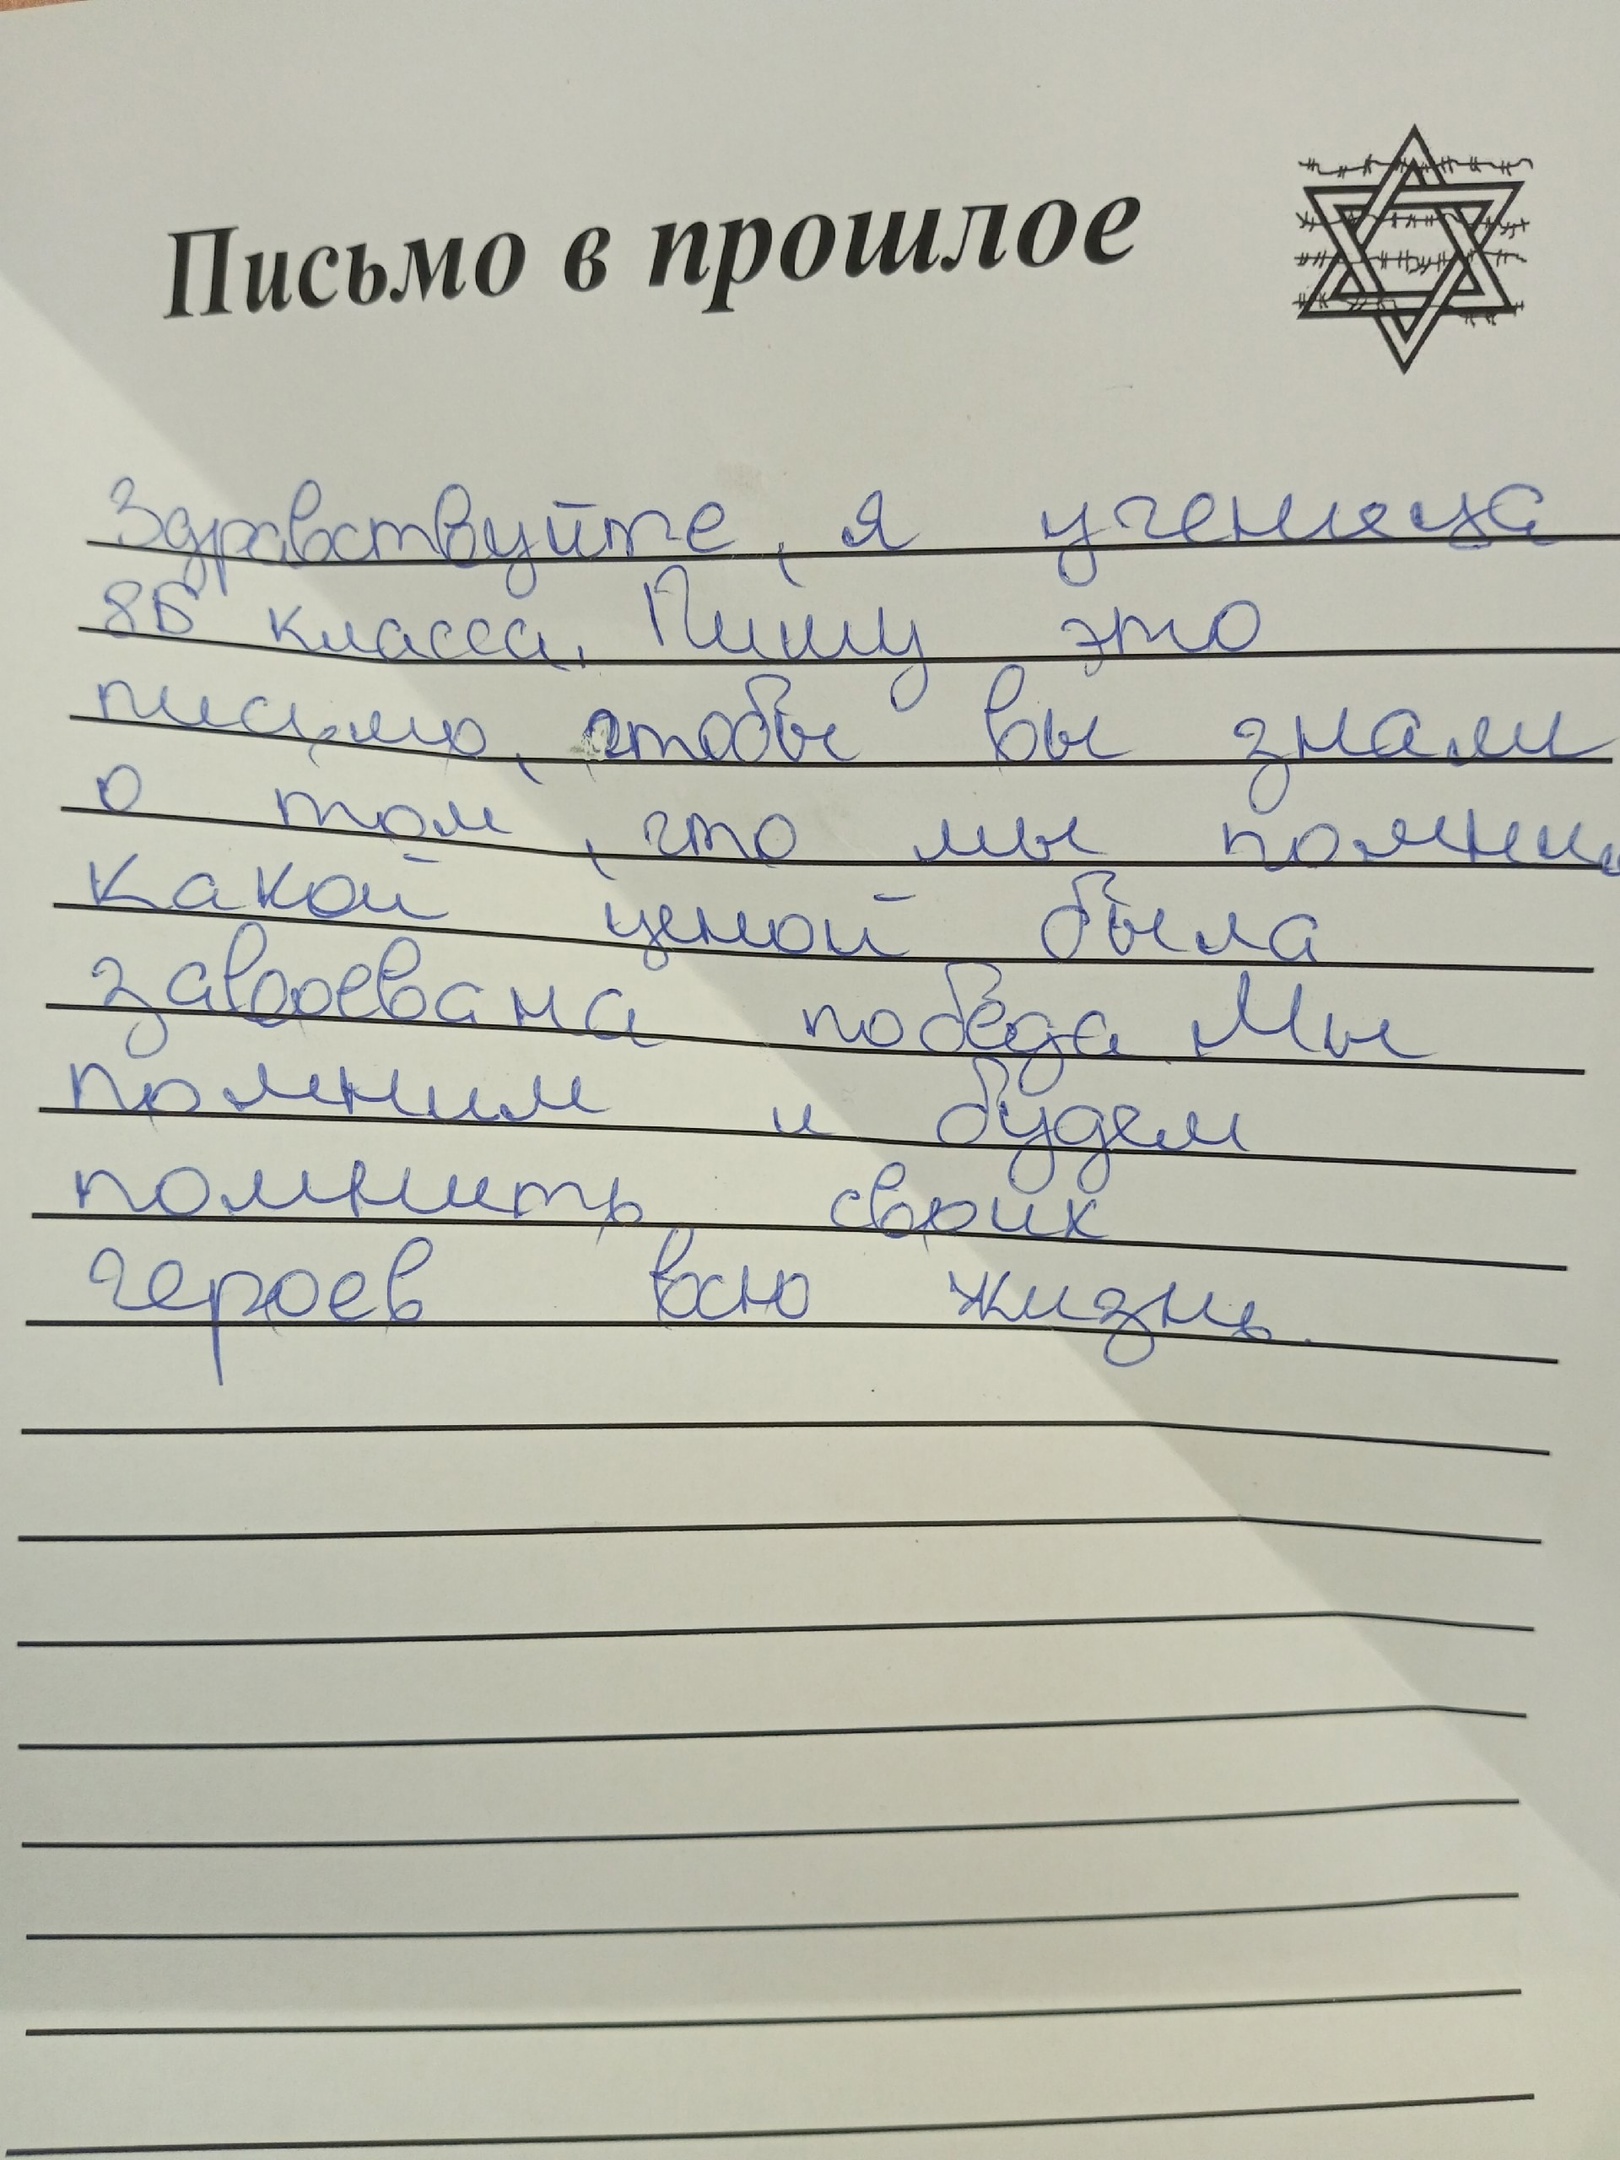 Письмо в прошлое
Здравствуйте, я ученица
8Б класса. Пишу это
письмо, чтобы вы знали
о том, что мы помни
какой ценой была
завоевана победа Мы
помним и будем
помнить своих
героев всю жизнь.